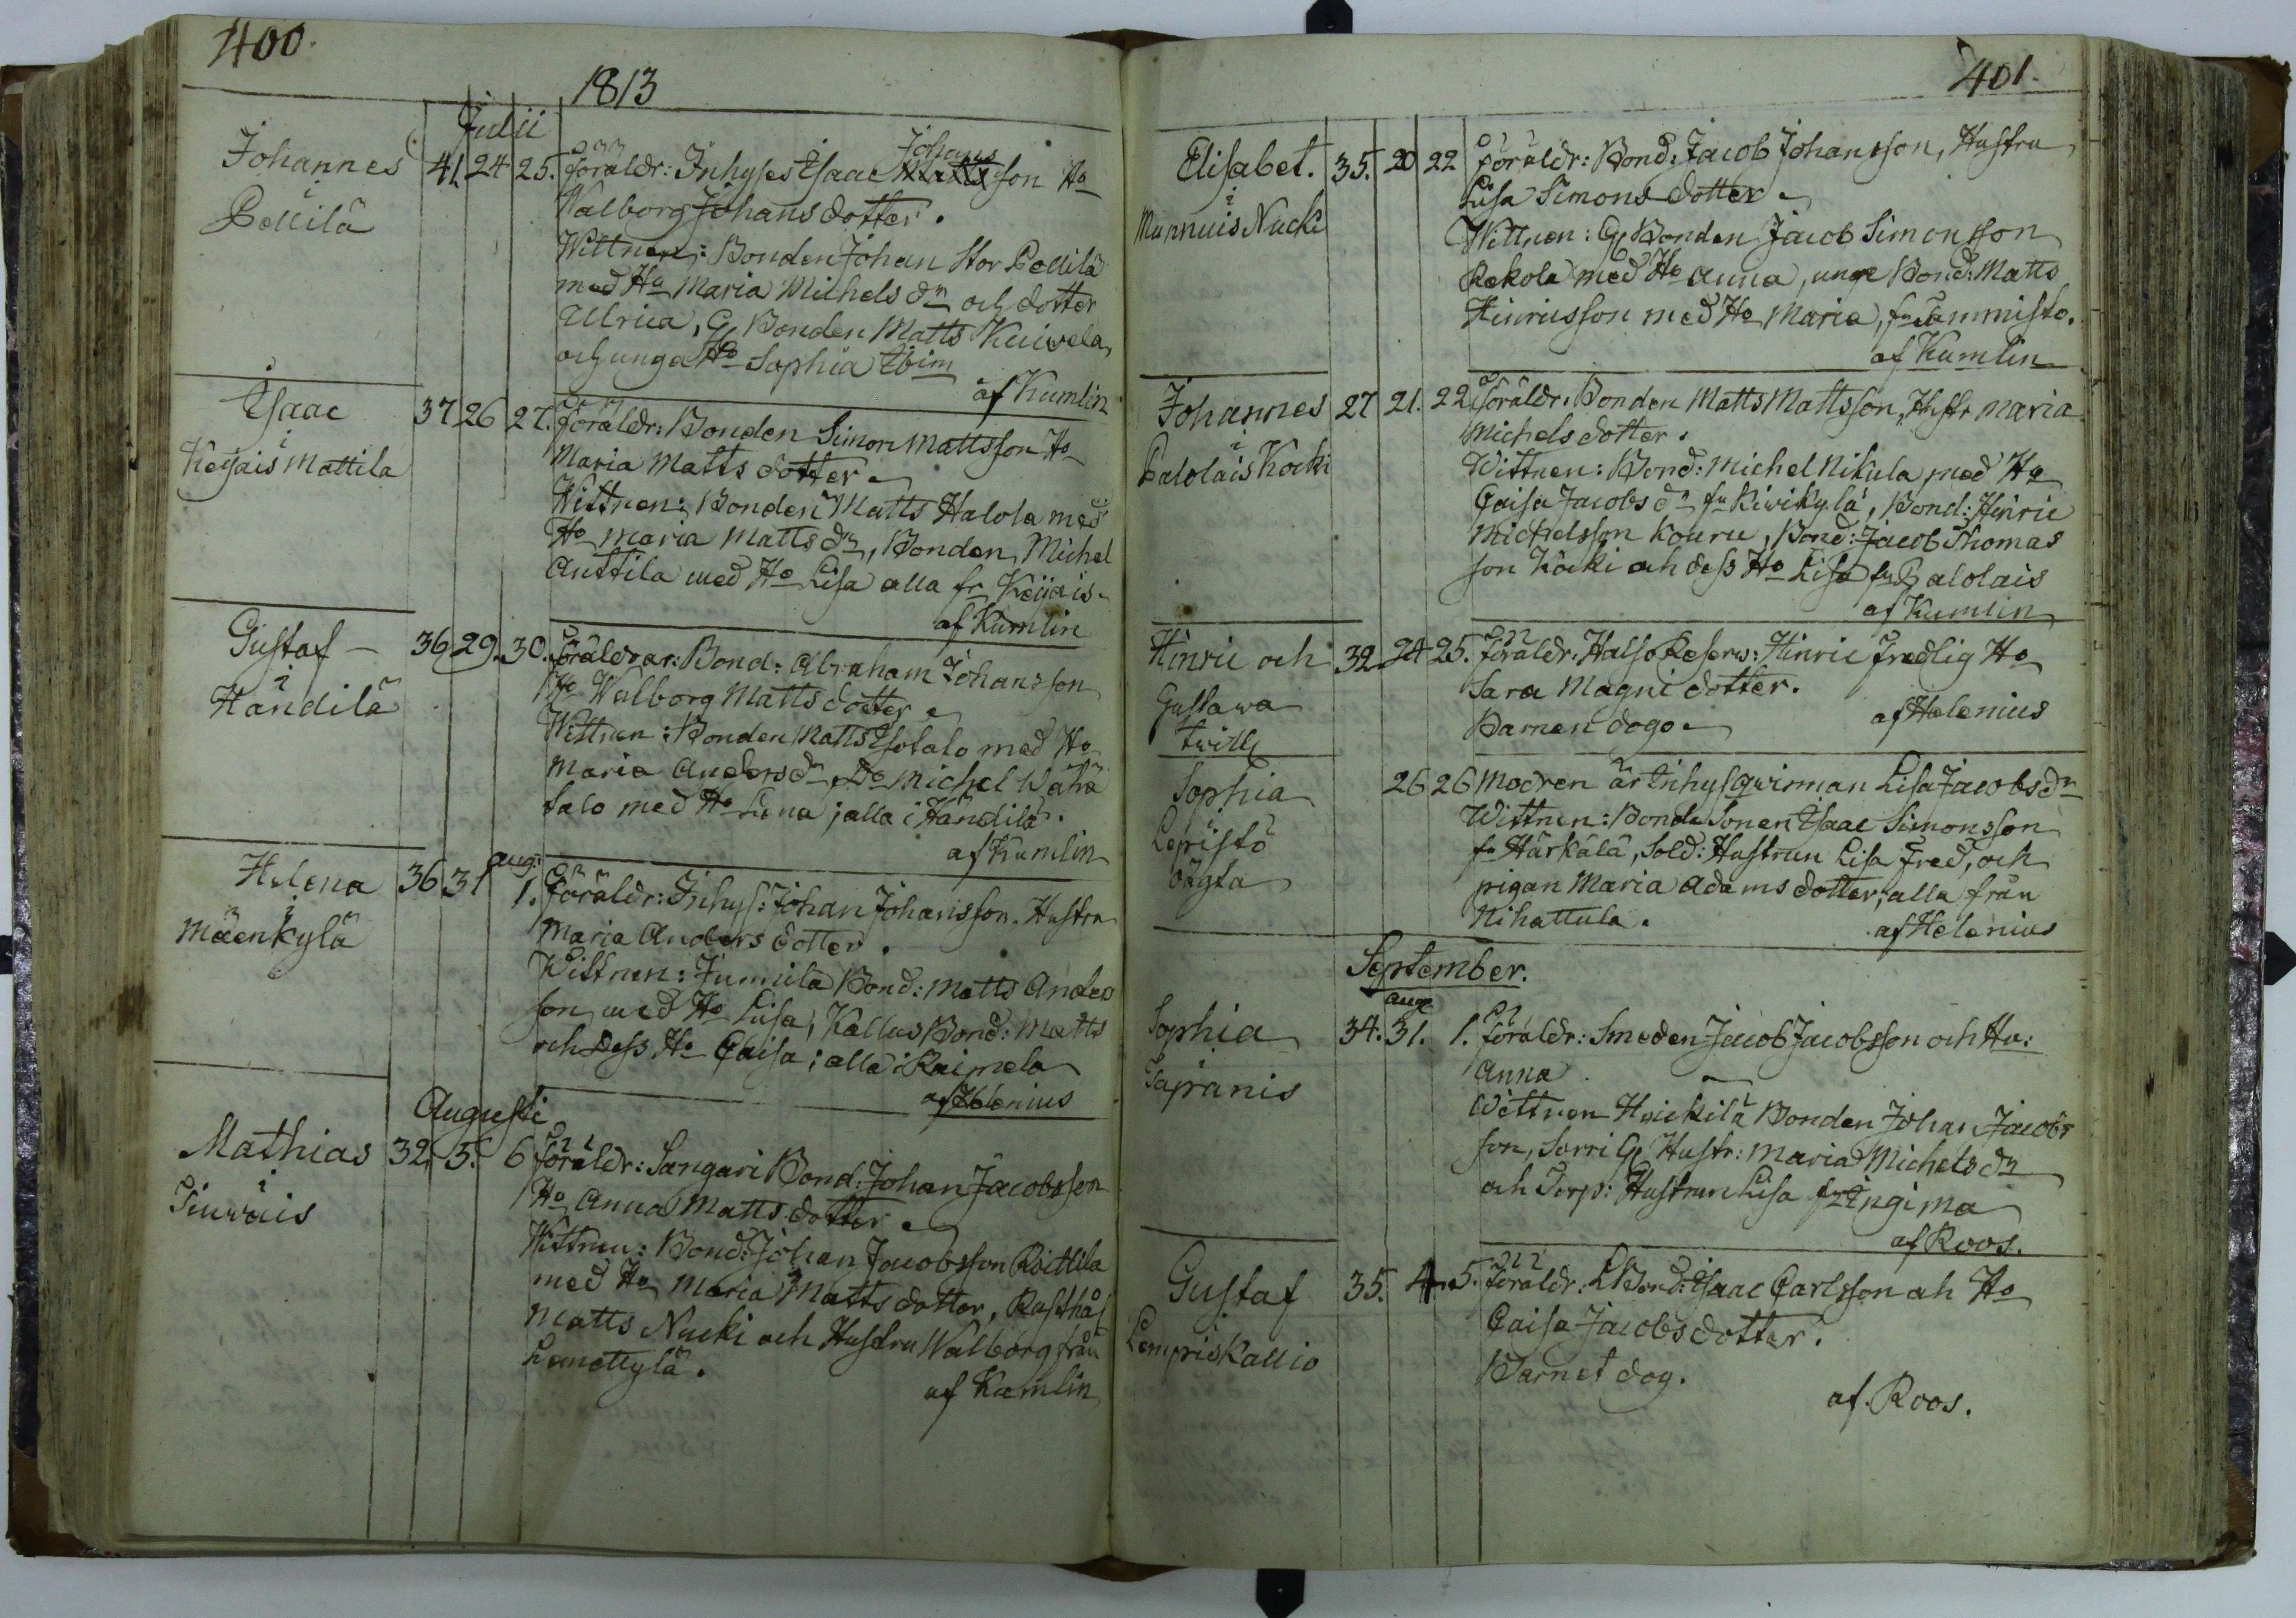 400.
1813
Julii
Johannes 41. 24 25. föräldr: Inhyses Isaac Johans Matts son Ho
i
Pellilä
Walborg Johans dotter.
Wittnen: Bonden Johan Stor Pellilä
med Ho Maria Michels dr och dotter
Ulrica, G Bonden Matts Kuivela,
och unga Ho Sophia ibim
af Kumlin
Isaac 37 26 27. föräldr: Bonden Simon Mattsson Ho
i
Keijais Mattila
Maria Matts dotter
Wittnen: Bonden Matts Halola med
Ho Maria Matts dr, Bonden Michel
Anttila med Ho Lisa alla fr Keijais.
af Kumlin
Gustaf 36 29. 30. föräldrar: Bond: Abraham Johansson
i
Händilä
Ho Walborg Matts dotter
Wittnen: Bonden Matts Isotalo med Ho
Maria Anders dr, Do Michel Wähä
talo med Ho Lena; alla i Händilä.
af Kumlin
Helena 36 31 aug: 1. föräldr: Inhys: Johan Johansson. Hustru
i
Mäenkylä
Maria Anders dotter.
Wittnen: Junnila Bond: Matts Anders
son med Ho Lisa, Kallus Bond: Matts
och dess Ho Caisa; alla i Raimela
af Helenius
Augusti
Mathias 32. 5. 6 föräldr: Sangari Bond: Johan Jacobsson
i
Sinwais
Ho Anna Matts dotter
Wittnen: Bond: Johan Jacobsson Knittilä
med Ho Maria Matts dotter, Rusthål
Matts Nucki och Hustru Walborg från
Lemettylä.
af Kumlin
401.
Elisabet. 35. 20 22 föräldr: Bond: Jacob Johansson, Hustru
i
Mannuis Nucki
Lisa Simons dotter
Wittnen: G Bonden Jacob Simonsson
Rekola med Ho Anna, unge Bond: Matts
Hinricsson med Ho Maria, fr Sammisto.
af Kumlin
Johannes 27 21. 22 föräldr: Bonden Matts Mattsson, Hustr Maria
i
Palolais Kocki
Michels dotter.
Wittnen: Bond: Michel Nikula med Ho
Caisa Jacobs dr fr Kiwikylä, Bond: Hinric
Michelsson Kouru, Bond: Jacob Thomas
son Kocki och dess Ho Lisa fr Palolais
af Kumlin
Hinric och 32. 24 25. föräldr: Halfo Reserv: Hinric Fredlig Ho
Gustawa
twill
Sara Magni dotter.
Barnen dogo
af Helenius
Sophia 26 26 Modren är Inhysqwinnan Lisa Jacobs dr
Lepistö
oägta
Wittnen: Bonde Sonen Isaac Simonsson
fr Härkälä, Sold: Hustrun Lisa Fred, och
pigan Maria Adams dotter; alla från
Nihattula.
af Helenius
September.
aug.
Sophia 34. 31. 1. föräldr: Smeden Jacob Jacobsson och Hu:
i
Tapranis
Anna
Wittnen Heickilä Bonden Johan Jacobs
son, Sorri G Hustr: Maria Michels dr
och Torp: Hustrun Lisa fr Ingima
af Roos.
Gustaf 35. 4. 5. föräldr: L Bond: Isaac Carlsson och Ho
i
Lempris Kallio
Caisa Jacobs dotter.
Barnet dog.
af. Roos.